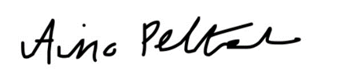 Aino Peltola